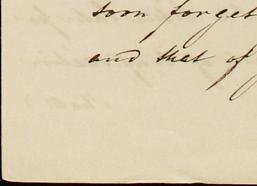 soon forget
and that of